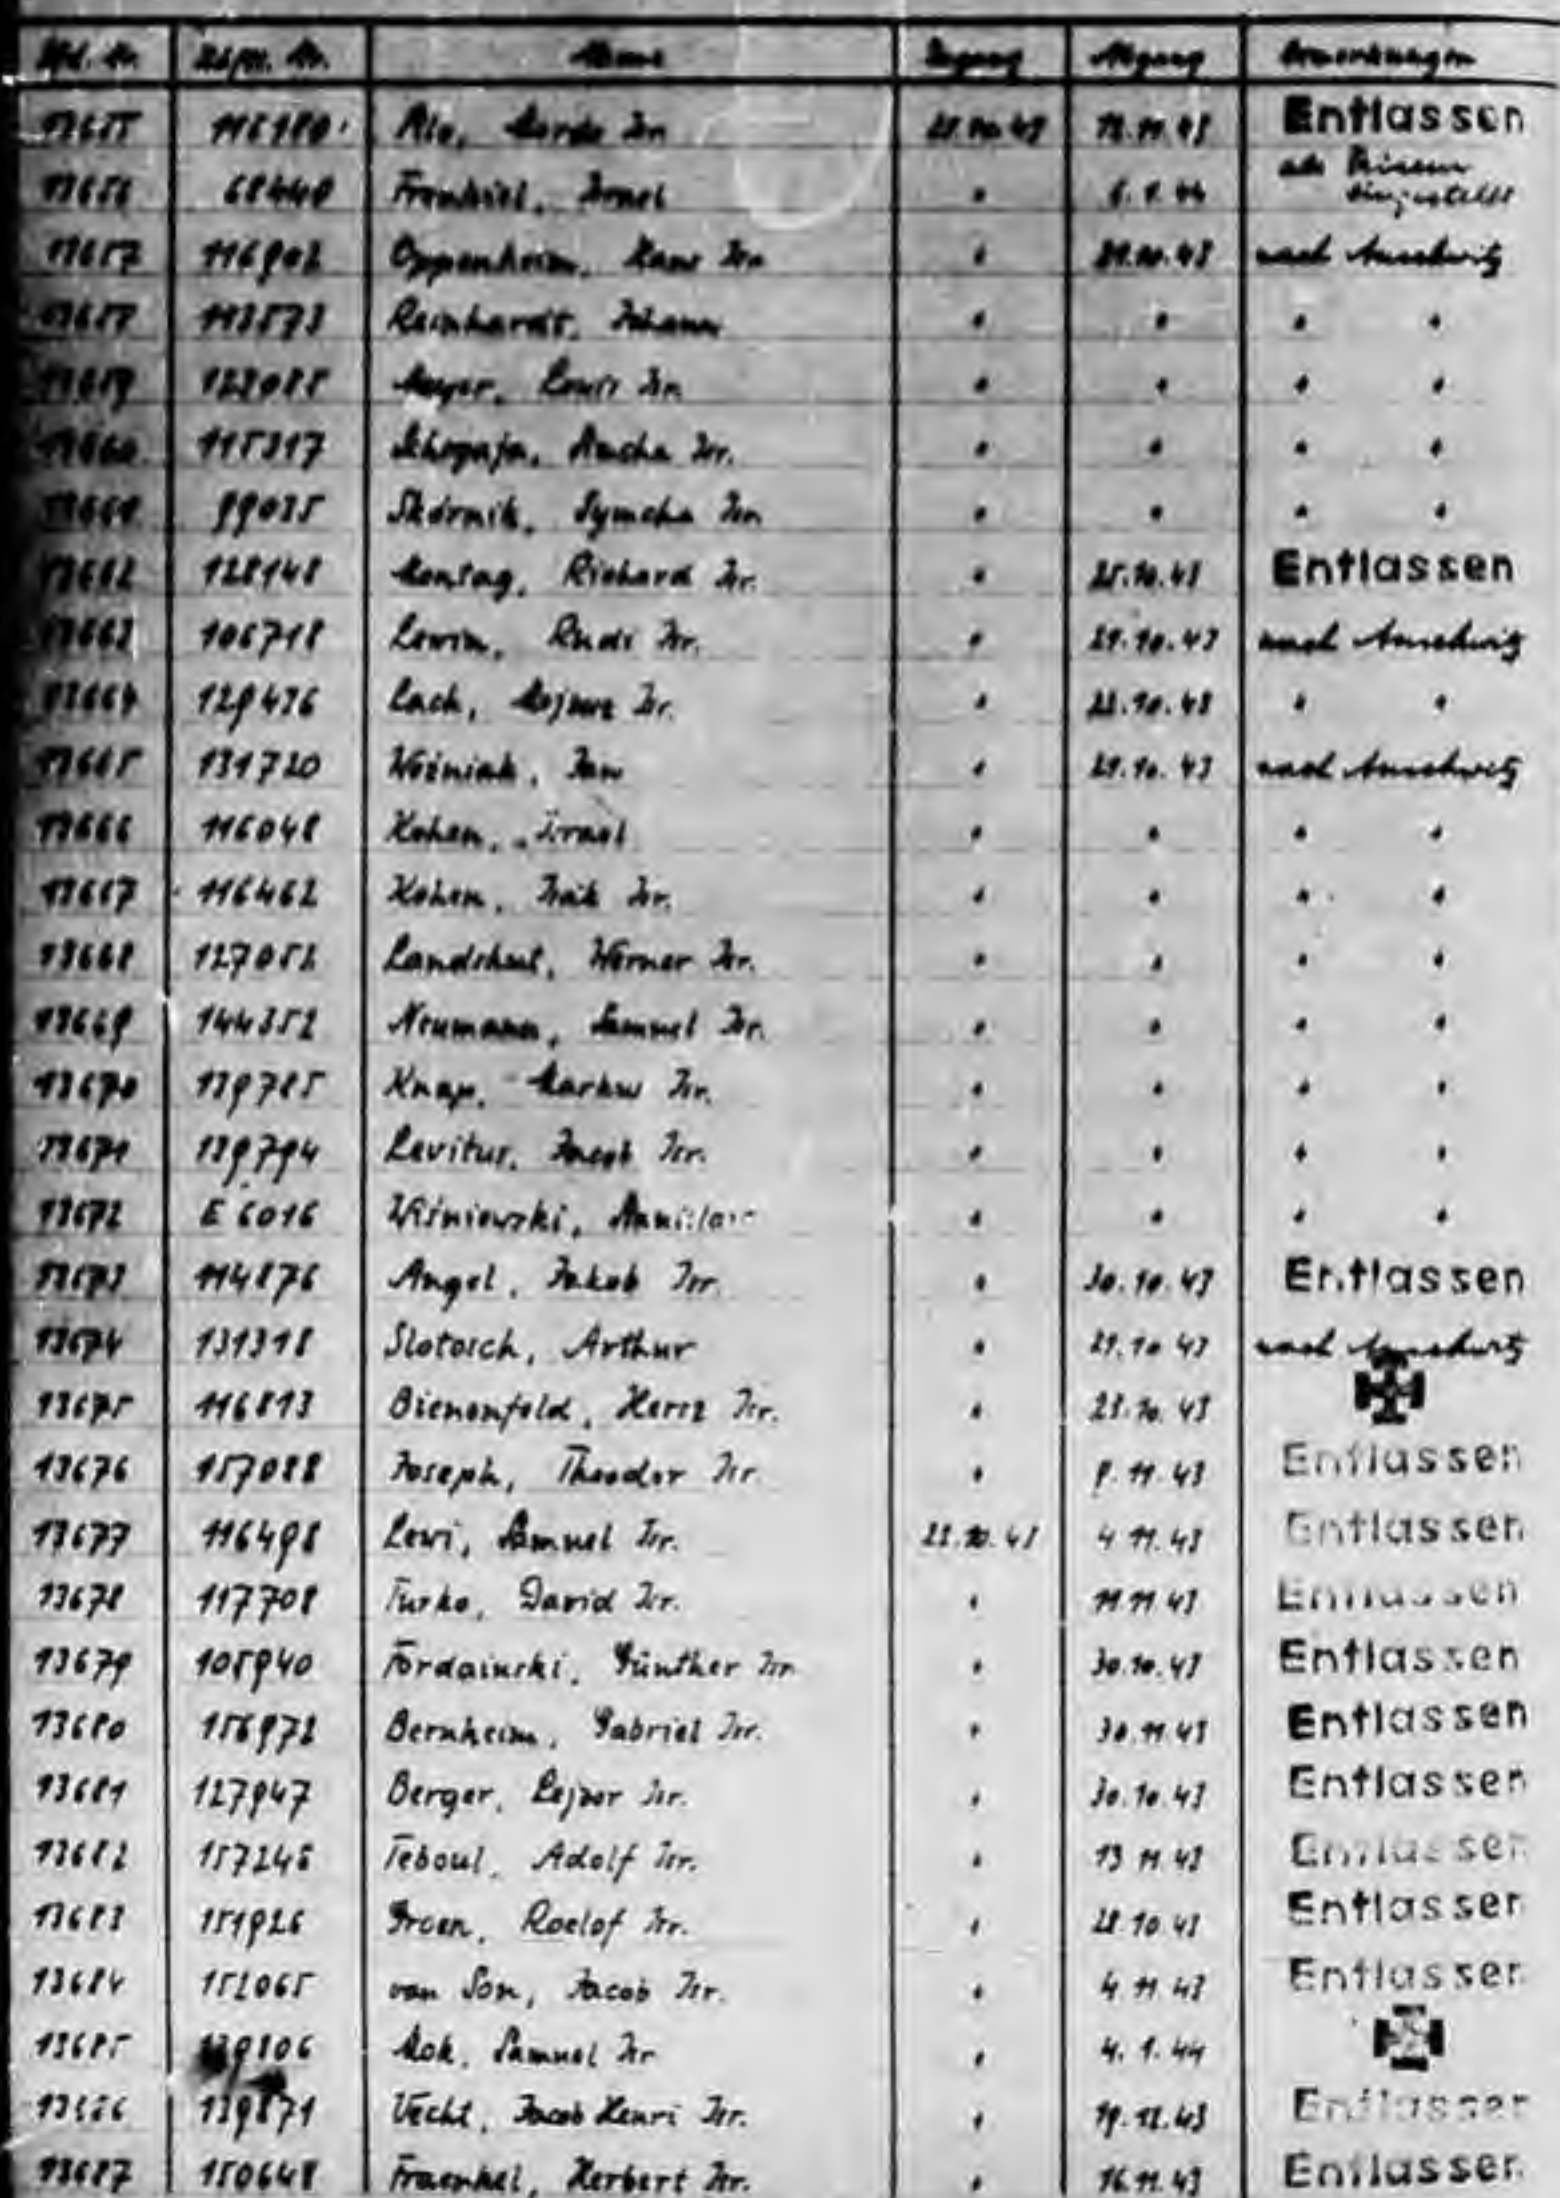 Lfd. Nr. Häftl. Nr. Name Zugang Abgang Bemerkungen
13655 116180 Isr. 28.10.43 12.11.43 Entlassen
13656 68440 Frenkiel, Israel " 6.1.44 als eingestellt
13657 116902 Oppenheim, Hans Isr. " 29.10.43 nach Auschwitz
113573 Reinhardt, Johann " " " "
13659 Meyer, Louis Isr. " " " "
13660 115317 Isr. " " " "
13661 99035 Skórnik, Symcha Isr. " " " "
13662 128148 Montag, Richard Isr. " Entlassen
13663 106718 Lewin, Rudi Isr. " 29.10.43 nach Auschwitz
13664 129476 Lach, Isr. " " "
13665 131720 Woźniak, Jan " 29.10.43 nach Auschwitz
13666 116048 Kohen, Israel " " " "
13667 116462 Kohen, Isak Isr. " " " "
13668 127052 Landshut, Werner Isr. " " " "
13669 144352 Neumann, Samuel Isr. " " " "
13670 139785 Knap, Markus Isr. " " " "
13671 139794 Levitus, Jacob Isr. " " " "
13672 E 6016 Wiśniewski, " " " "
13673 114876 Angel, Jakob Isr. " 30.10.43 Entlassen
13674 131318 Slotosch, Arthur " 29.10.43 nach Auschwitz
13675 116813 Bienenfeld, Hersz Isr. " 28.10.43
13676 157088 Joseph, Theodor Isr. " 9.11.43 Entlassen
13677 116498 Lewi, Samuel Isr. 28.10.43 4.11.43 Entlassen
13678 117708 Turko, David Isr. " 11.11.43 Entlassen
13679 105940 Fordainski, Günther Isr. " 30.10.43 Entlassen
13680 156972 Bernheim, Gabriel Isr. " 30.11.43 Entlassen
13681 127947 Berger, Lejzor Isr. " 30.10.43 Entlassen
13682 157246 Teboul, Adolf Isr. " 13.11.43 Entlassen
13683 151926 Groen, Roelof Isr. " 28.10.43 Entlassen
13684 152065 van Son, Jacob Isr. " 4.11.43 Entlassen
13685 Mok, Samuel Isr. " 4.1.44
13686 139871 Vecht, Jacob Henri Isr. " 19.12.43 Entlassen
13687 150648 Fraenkel, Herbert Isr. " 16.11.43 Entlassen